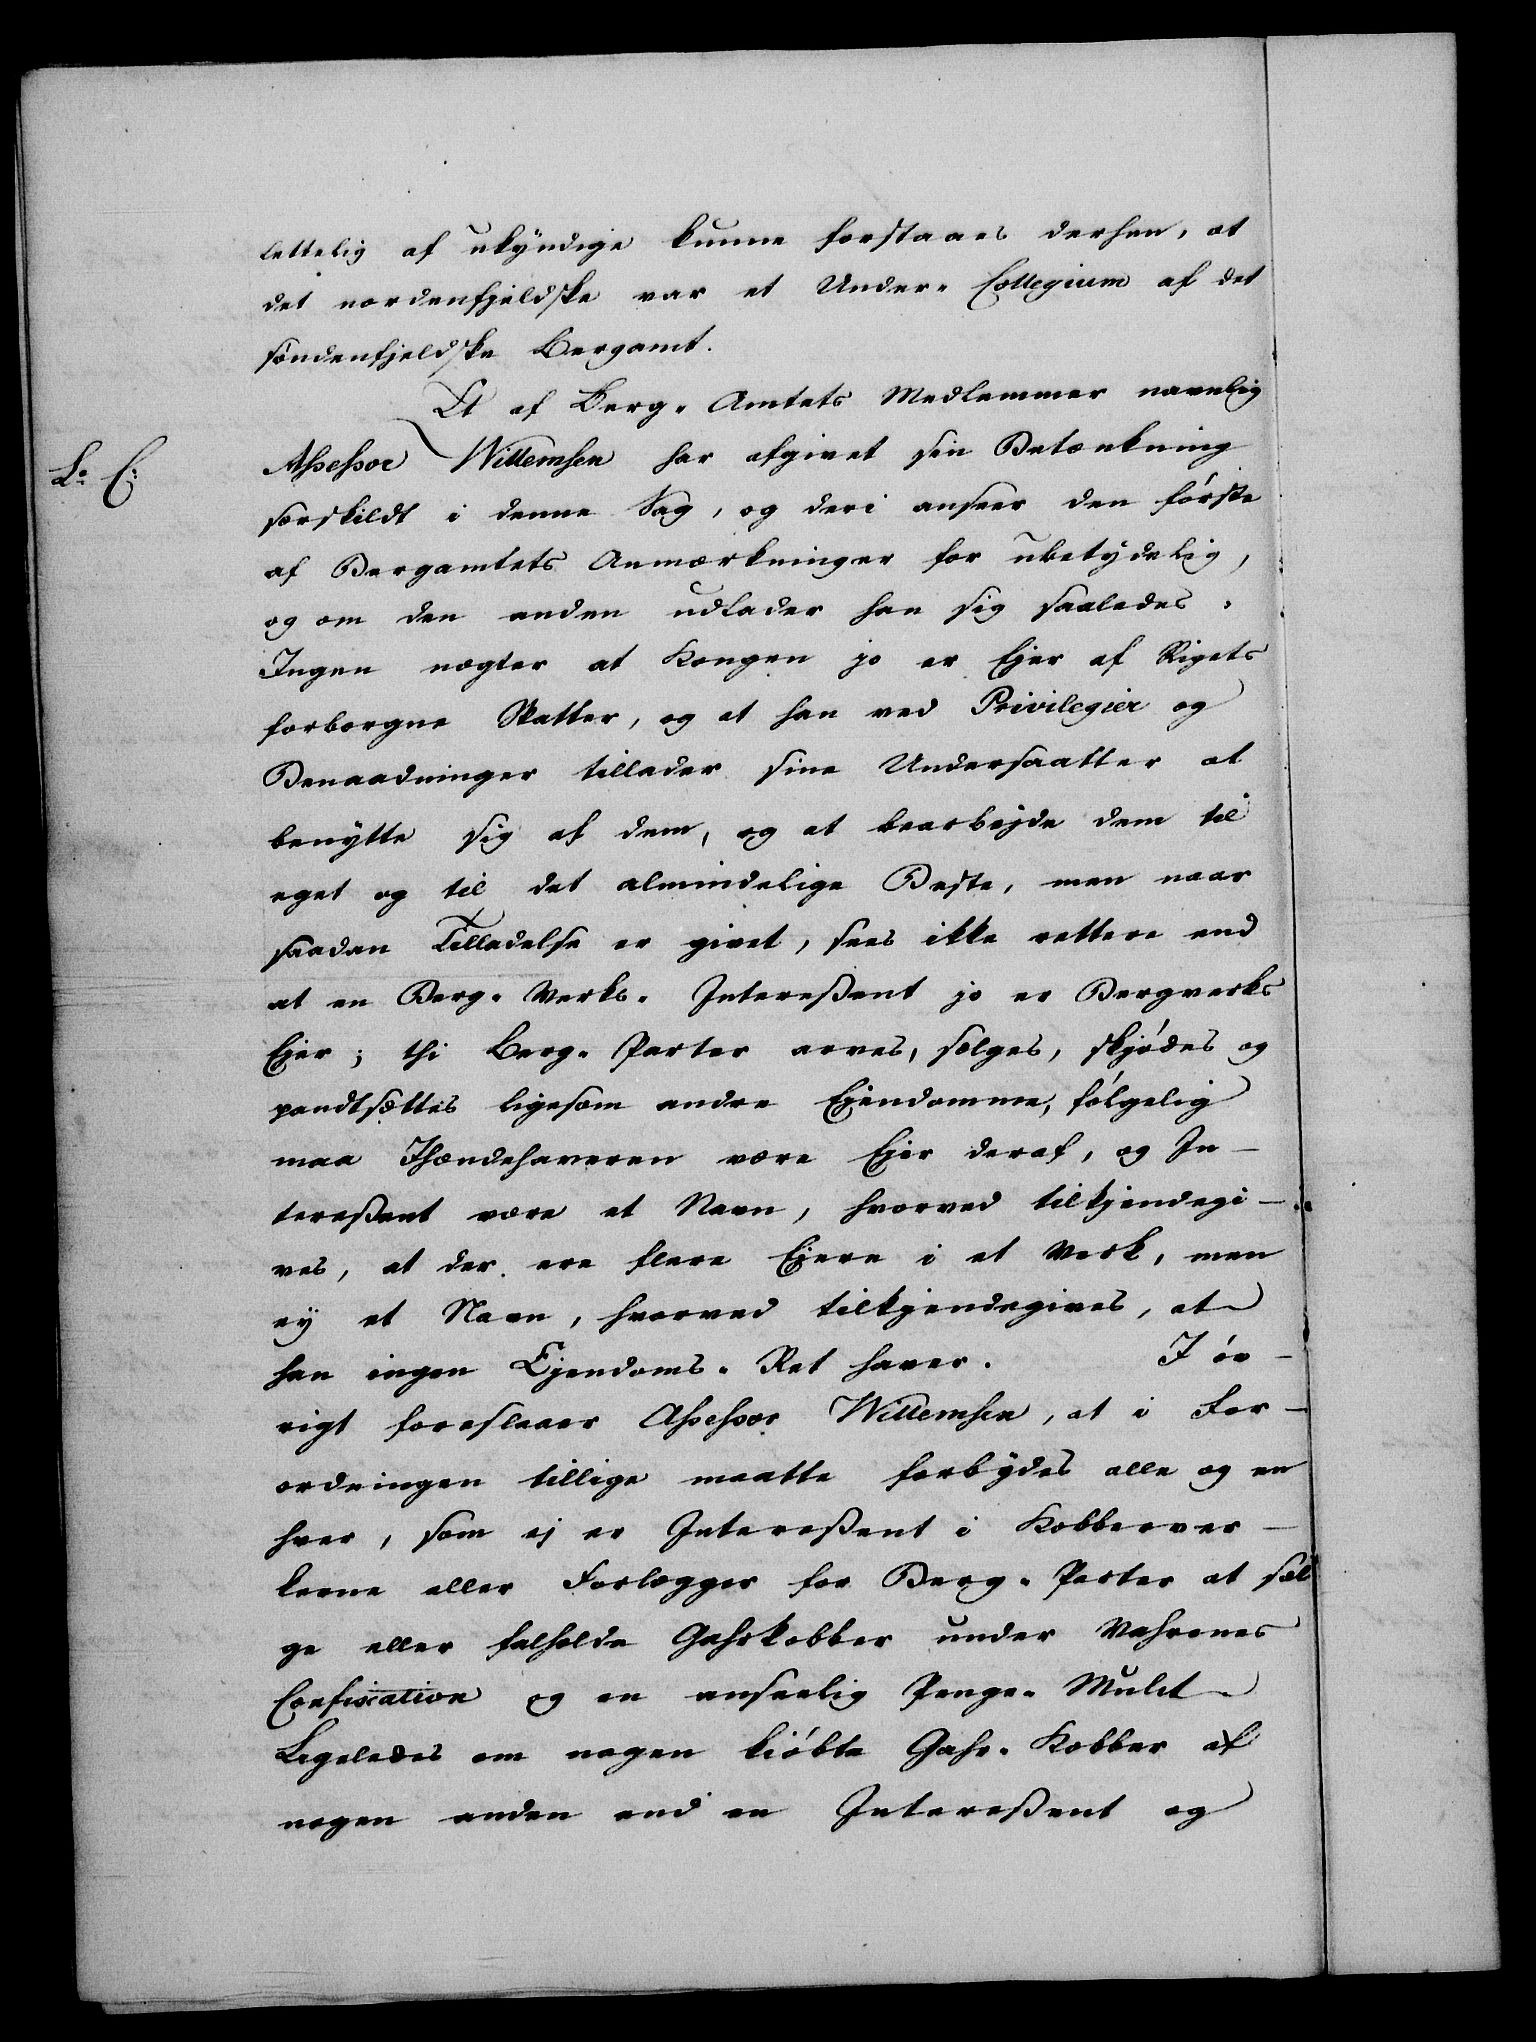 lettelig af ukyndige kunne forstaaes derhen, at
det nordenfjeldske var et Under- Collegium af det
søndenfjeldske Bergamt.
Et af Berg- Amtets Medlemmer navnlig
L: C:
Assessor Willemsen har afgivet sin Betænkning
særskildt i denne Sag, og deri anseer den første
af Bergamtets Anmærkninger for ubetydelig,
og om den anden udlader han sig saaledes:
Ingen nægter at Kongen jo er Ejer af Rigets
forborgne Skatter, og at han ved Privilegier og
Benaadninger tillader sine Undersaatter at
benytte sig af dem, og at bearbejde dem til
eget og til det almindelige Beste, men naar
saadan Tilladelse er givet, sees ikke rettere end
at en Berg- Verks- Interessent jo er Bergverks
Ejer; thi Berg- Parter arves, sælges, skjødes og
pandtsættes ligesom andre Ejendomme, følgelig
maa Ihændehaveren være Ejer deraf, og In-
teressent være et Navn, hvorved tilkjendegi-
ves, at der ere flere Ejere i et Verk, men
ey et Navn, hvorved tilkjendegives, at
han ingen Ejendoms- Ret haver. I øv-
rigt foreslaaer Assessor Willemsen, at i For-
ordningen tillige maatte forbydes alle og en
hver, som ej er Interessent i Kobberver-
kerne eller Forlægger for Berg- Parter at sæl
ge eller falholde Gahrkobber under Vahrenes
Confiscation og en anseelig Penge- Mulct
Ligeledes om nogen kiøbte Gahr- Kobber af
nogen anden end en Interessent og